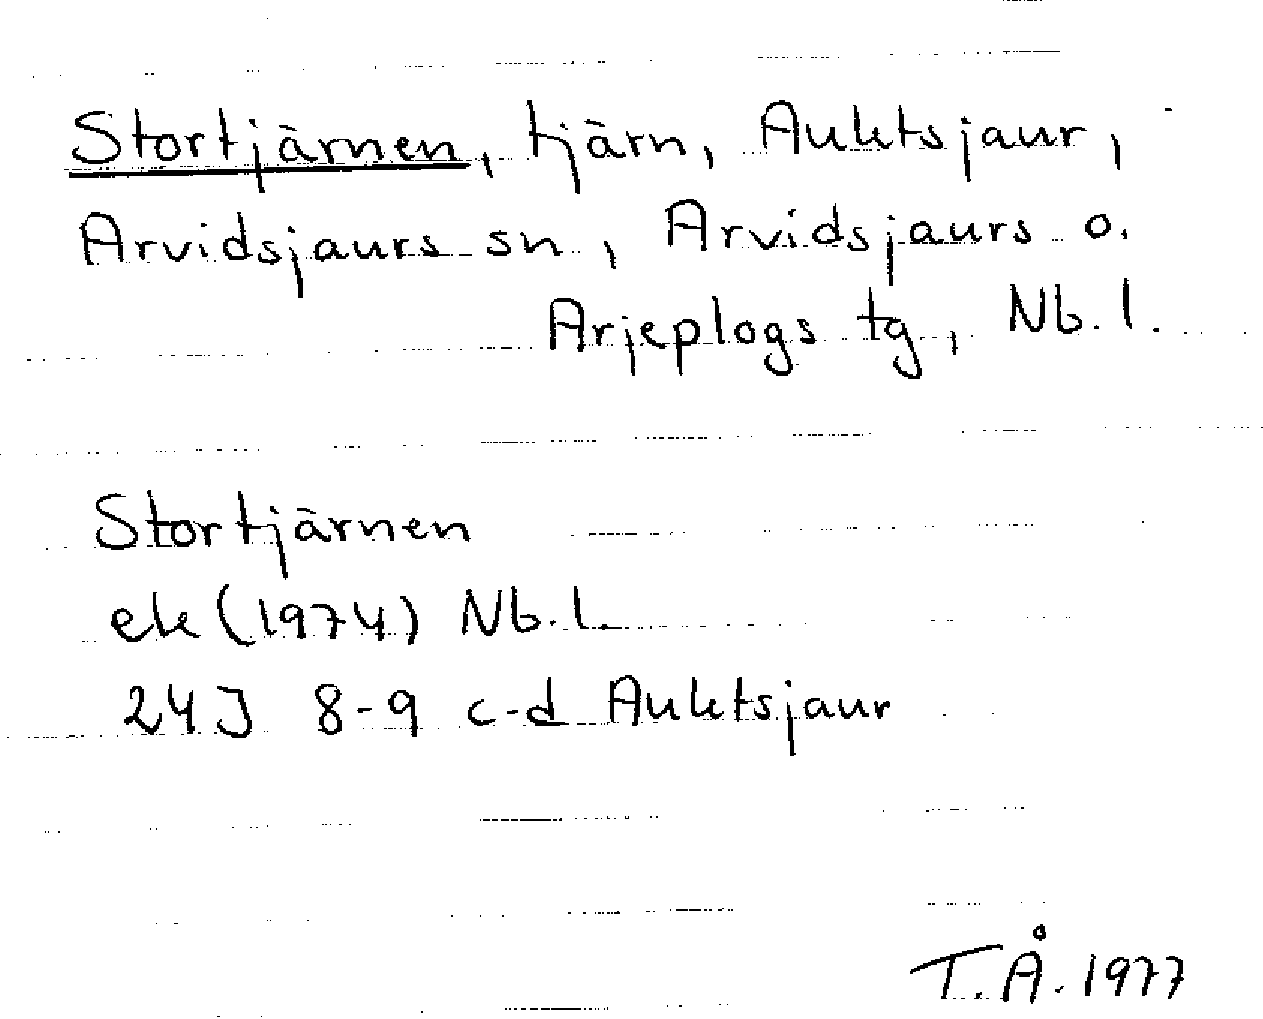 Stortjärnen, tjärn, Auktsjaur,
Arvidsjaurs sn, Arvidsjaurs o.
Arjeplogs tg, Nb. l.
Stortjärnen
ek (1974) Nb. l.
24J 8-9 c-d Auktsjaur
T.Å. 1977